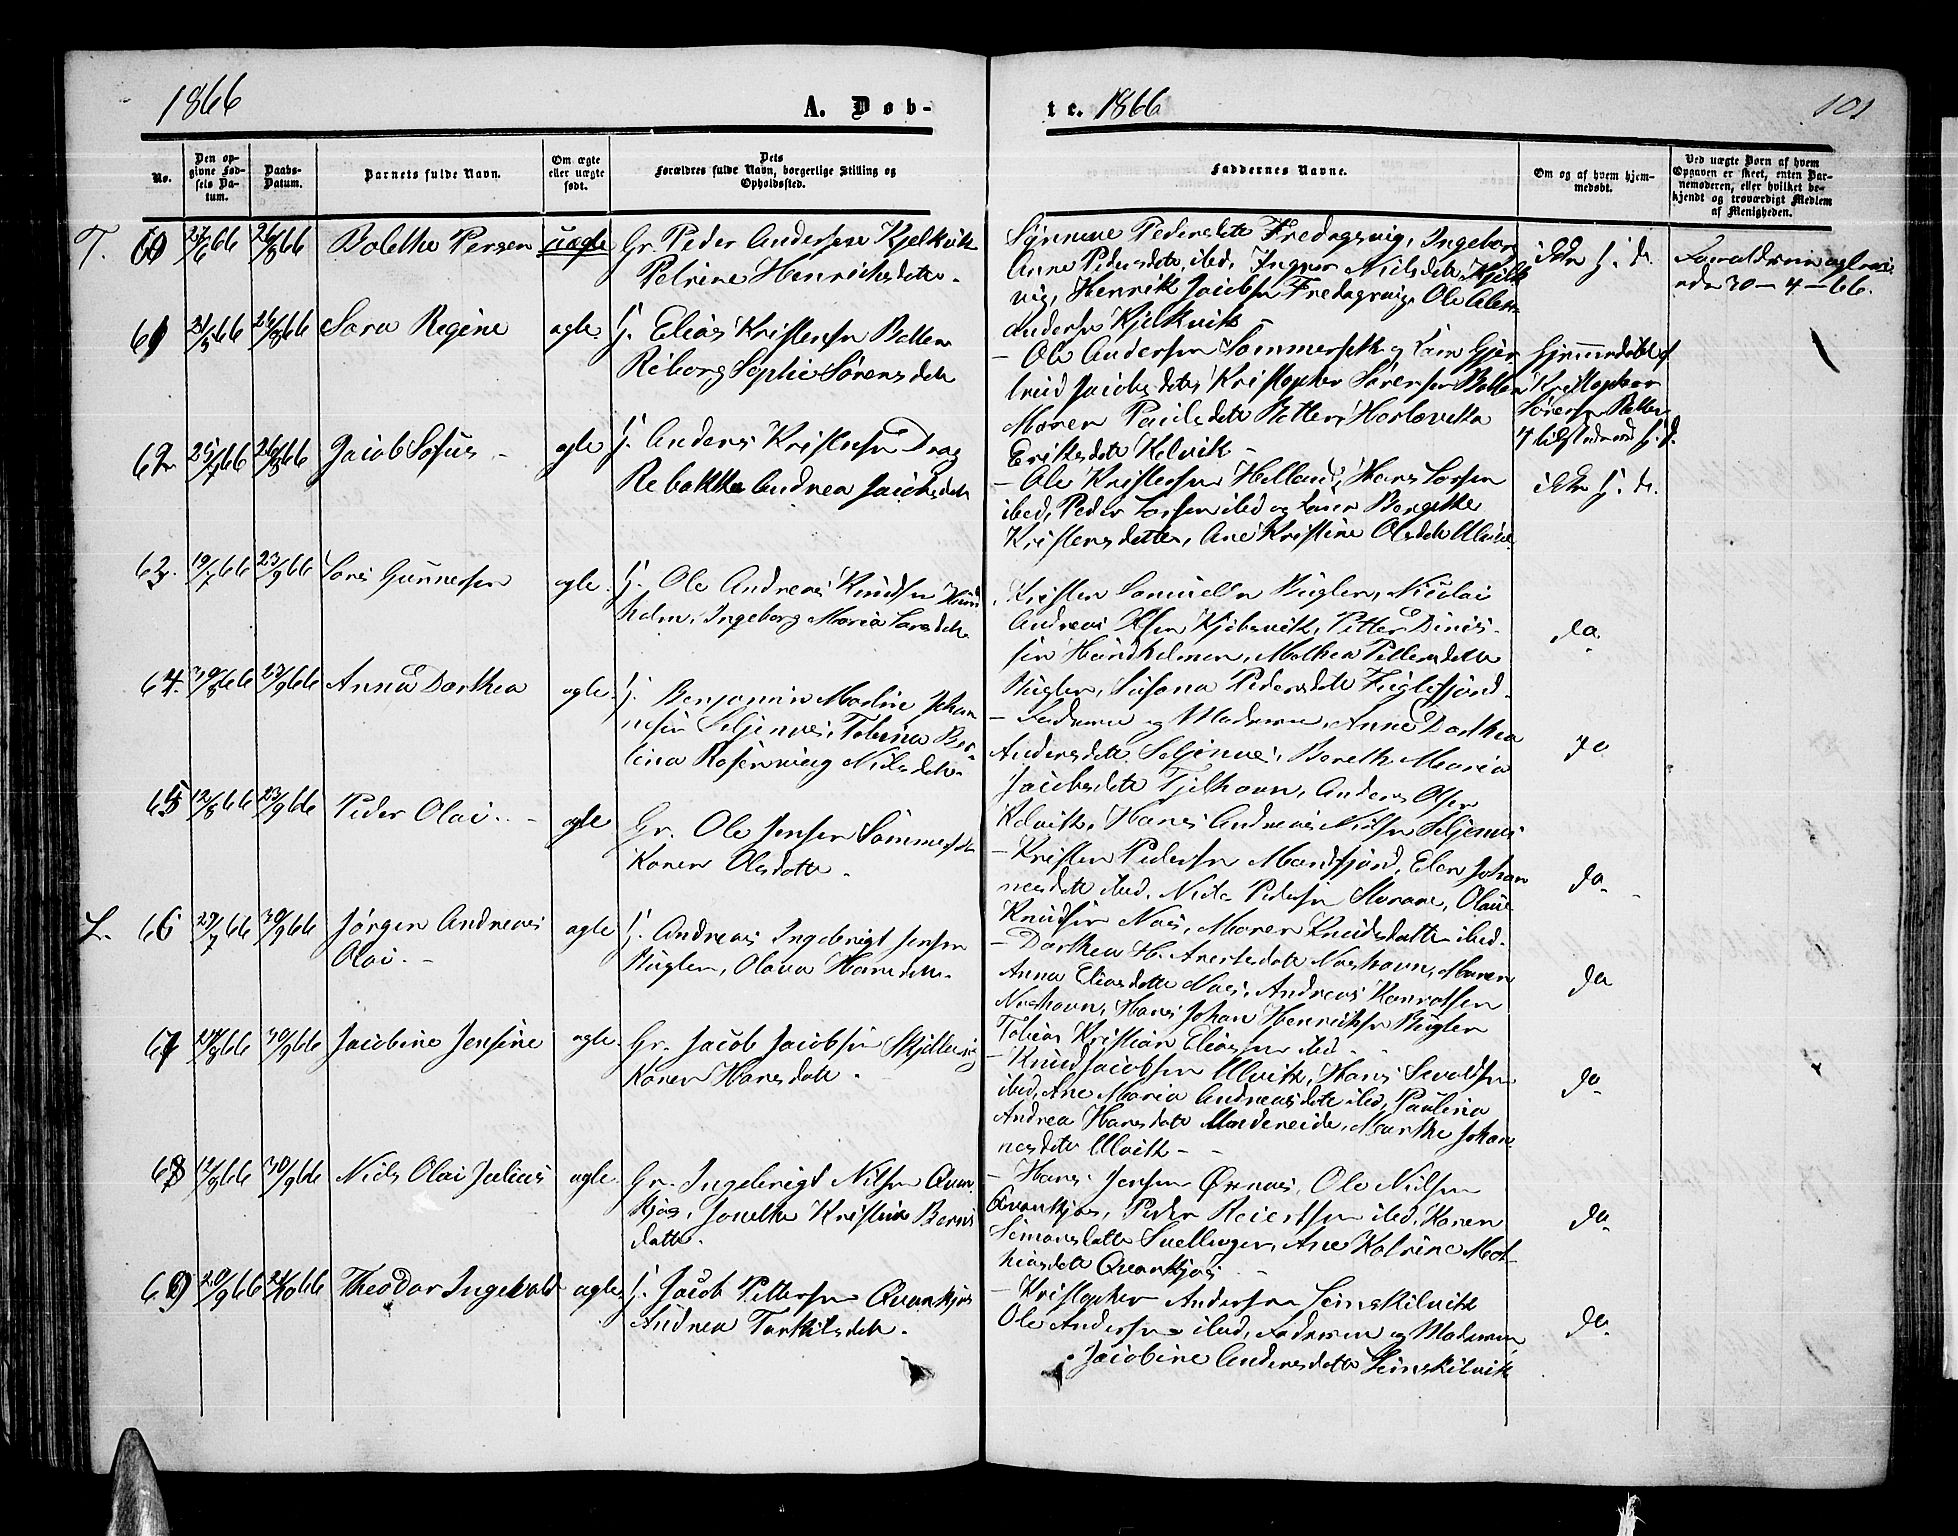 1866
A. Døb-
te. 1866
101
No.
Den opgivne Fødsels Datum.
Daabs-Datum.
Barnets fulde Navn.
Om ægte eller uægte født.
Dets Forældres fulde Navn, borgerlige Stilling og Opholdssted.
Faddernes Navne.
Om og af hvem hjemmedøbt.
Ved uægte Børn af hvem Opgaven er skeet, enten Barnemoderen, eller hvilket bekjendt og troværdigt Medlem af Menigheden.
T. 60 27/6 66 26/8 66 Bolethe Persen uægte Gr. Peder Andersen Kjelkvik
Petrine Henriksdatter.
Synnene Pedersdatter Fredagsvig, Ingebor
Anne Pedersdatter ibed, Inger Nilsdatter Kjelk
vig, Henrik Jacobsen Fredagsvig, Ole Alex
andersen Kjelkvik
ikke hj. d.
30-4-66.
61 66 26/8 66 Sara Regine ægte. G. Elias Kristensen Botten
Reborg Sophie Sørensdatter
- Ole Andersen Sommerseth og Kone Gjer
trud Jacobsdatter Kristopher Sørensen Botten
Maren Paulsdatter Botten,
Eriksdatter Kelvik -
Hjemmedøbt af
Kristopher
Sørensen Botten
62 25/7 66 26/8 66 Jacob Sofus - ægte G. Anders Kristensen Drag
Rebekka Andrea Jacobsdatter
- Ole Kristensen Helland, Hans Larsen
ibed, Peder Larsen ibed og Karen Bergithe
Kristensdatter, Ane Kristine Olsdatter
ikke hj. d.
63. 19/7 66 23/9 66 Lars Gunnersen ægte. G. Ole Andreas Knudsen Hund
holm, Ingeborg Maria Larsdatter
Kristen Samuelsen Bugten, Nicolai
Andreas Olsen Kjøbsvik, Petter Dinis-
sen Hundholmen, Mathea Pettersdatter
Bugten, Susana Pedersdatter Fuglefjord
da.
64. 30/8 66 27/9 66 Anna Dorthea ægte G. Benjamin Martin Johan
nesen Seljenæs, Tobina Ber-
tina Rosenvinge Nilsdatter
- Faderen og Moderen, Anne Dorthea
Andersdatter Seljenæs, Bereth Maria
Jacobsdatter Tjelhavn, Anders Olsen
Kelvik, Hans Andreas Nilsen Seljenæs
da
65 12/8 66 23/9 66 Peder Olai. - ægte Gr. Ole Jensen Sommerseth
Karen Olsdatter.
- Kristen Pedersen Mandfjord, Elen Johan
nesdatter ibed, Nils Pedersen Storaae, Olaus
Knudsen Næs, Maren Knudsdatter ibed.
da.
L. 66 29/7 66 30/9 66 Jørgen Andreas
Olai. - ægte G. Andreas Ingebrigt Jensen
Bugten, Olava Hansdatter.
- Dorthea H. Arentsdatter Næshavn, Maren
Anna Eliasdatter Næs, Andreas Konradsen
Næshavn, Hans Johan Henriksen Bugten
Tobias Kristian Eliassen ibed.
da
67 66 30/9 66 Jacobine Jensine ægte. Gr. Jacob Jacobsen Skjellesvig
Karen Hansdatter.
- Knud Jacobsen Ulvik, Hans Sevaldsen
ibed, Ane Maria Andreasdatter ibed, Paulina
Andrea Hansdatter Mandereide, Marthe Johan
nesdatter Ulvik -
da.
68 12/8 66 30/9 66 Niels Olai Julius ægte Gr. Ingebrigt Nilsen Qvan
kjos, Janetha Kristine Berns
datter.
- Hans Jensen Ørenæs, Ole Nilsen
Qvankjos, Peder Reiertsen ibed, Karen
Simonsdatter Svellinger, Ane Katrine Mat-
hiasdatter Qvankjos
da
69 20/9 66 21/10 66 Theodor Ingevald ægte G. Jacob Pettersen Qvankjos
Andrea Torkilsdatter.
- Kristopher Andersen Leinskilvik
Ole Andersen ibed, Faderen og Moderen
Jacobine Andersdatter Leinskilvik
da.